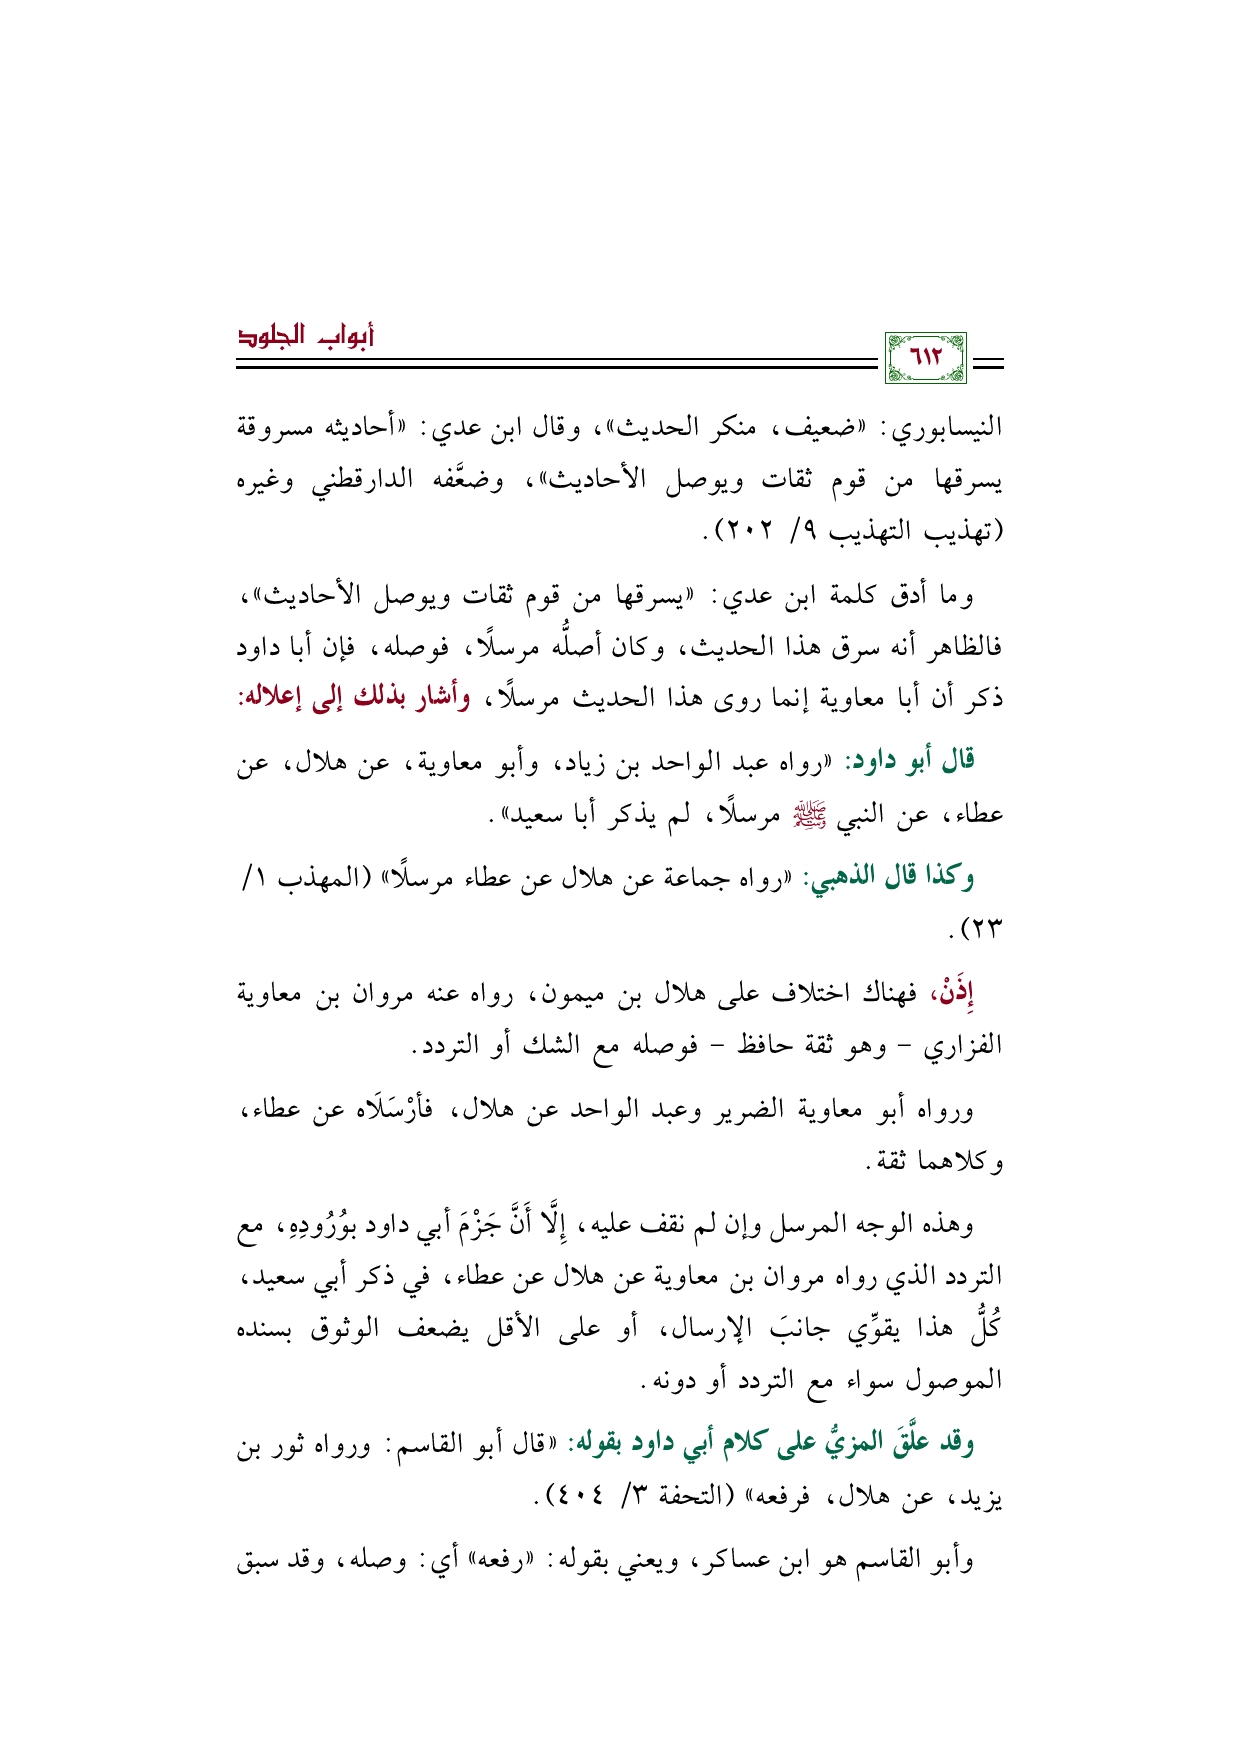 أبواب الجلود
٦١٢
النيسابوري: «ضعيف، منكر الحديث»، وقال ابن عدي: «أحاديثه مسروقة
يسرقها من قوم ثقات ويوصل الأحاديث»، وضعَّفه الدارقطني وغيره
(تهذيب التهذيب ٩/ ٢٠٢).
وما أدق كلمة ابن عدي: «يسرقها من قوم ثقات ويوصل الأحاديث»،
فالظاهر أنه سرق هذا الحديث، وكان أصلُّه مرسلًا، فوصله، فإن أبا داود
ذكر أن أبا معاوية إنما روى هذا الحديث مرسلًا، وأشار بذلك إلى إعلاله:
قال أبو داود: «رواه عبد الواحد بن زياد، وأبو معاوية، عن هلال، عن
عطاء، عن النبي ﷺ مرسلًا، لم يذكر أبا سعيد».
وكذا قال الذهبي: «رواه جماعة عن هلال عن عطاء مرسلًا» (المهذب ١/
٢٣).
إِذَنْ، فهناك اختلاف على هلال بن ميمون، رواه عنه مروان بن معاوية
الفزاري - وهو ثقة حافظ - فوصله مع الشك أو التردد.
ورواه أبو معاوية الضرير وعبد الواحد عن هلال، فأرْسَلَاه عن عطاء،
وكلاهما ثقة.
وهذه الوجه المرسل وإن لم نقف عليه، إِلَّا أَنَّ جَزْمَ أبي داود بوُرُودِهِ، مع
التردد الذي رواه مروان بن معاوية عن هلال عن عطاء، في ذكر أبي سعيد،
كُلُّ هذا يقوِّي جانبَ الإرسال، أو على الأقل يضعف الوثوق بسنده
الموصول سواء مع التردد أو دونه.
وقد علَّقَ المزيُّ على كلام أبي داود بقوله: «قال أبو القاسم: ورواه ثور بن
يزيد، عن هلال، فرفعه» (التحفة ٣/ ٤٠٤).
وأبو القاسم هو ابن عساكر، ويعني بقوله: «رفعه» أي: وصله، وقد سبق